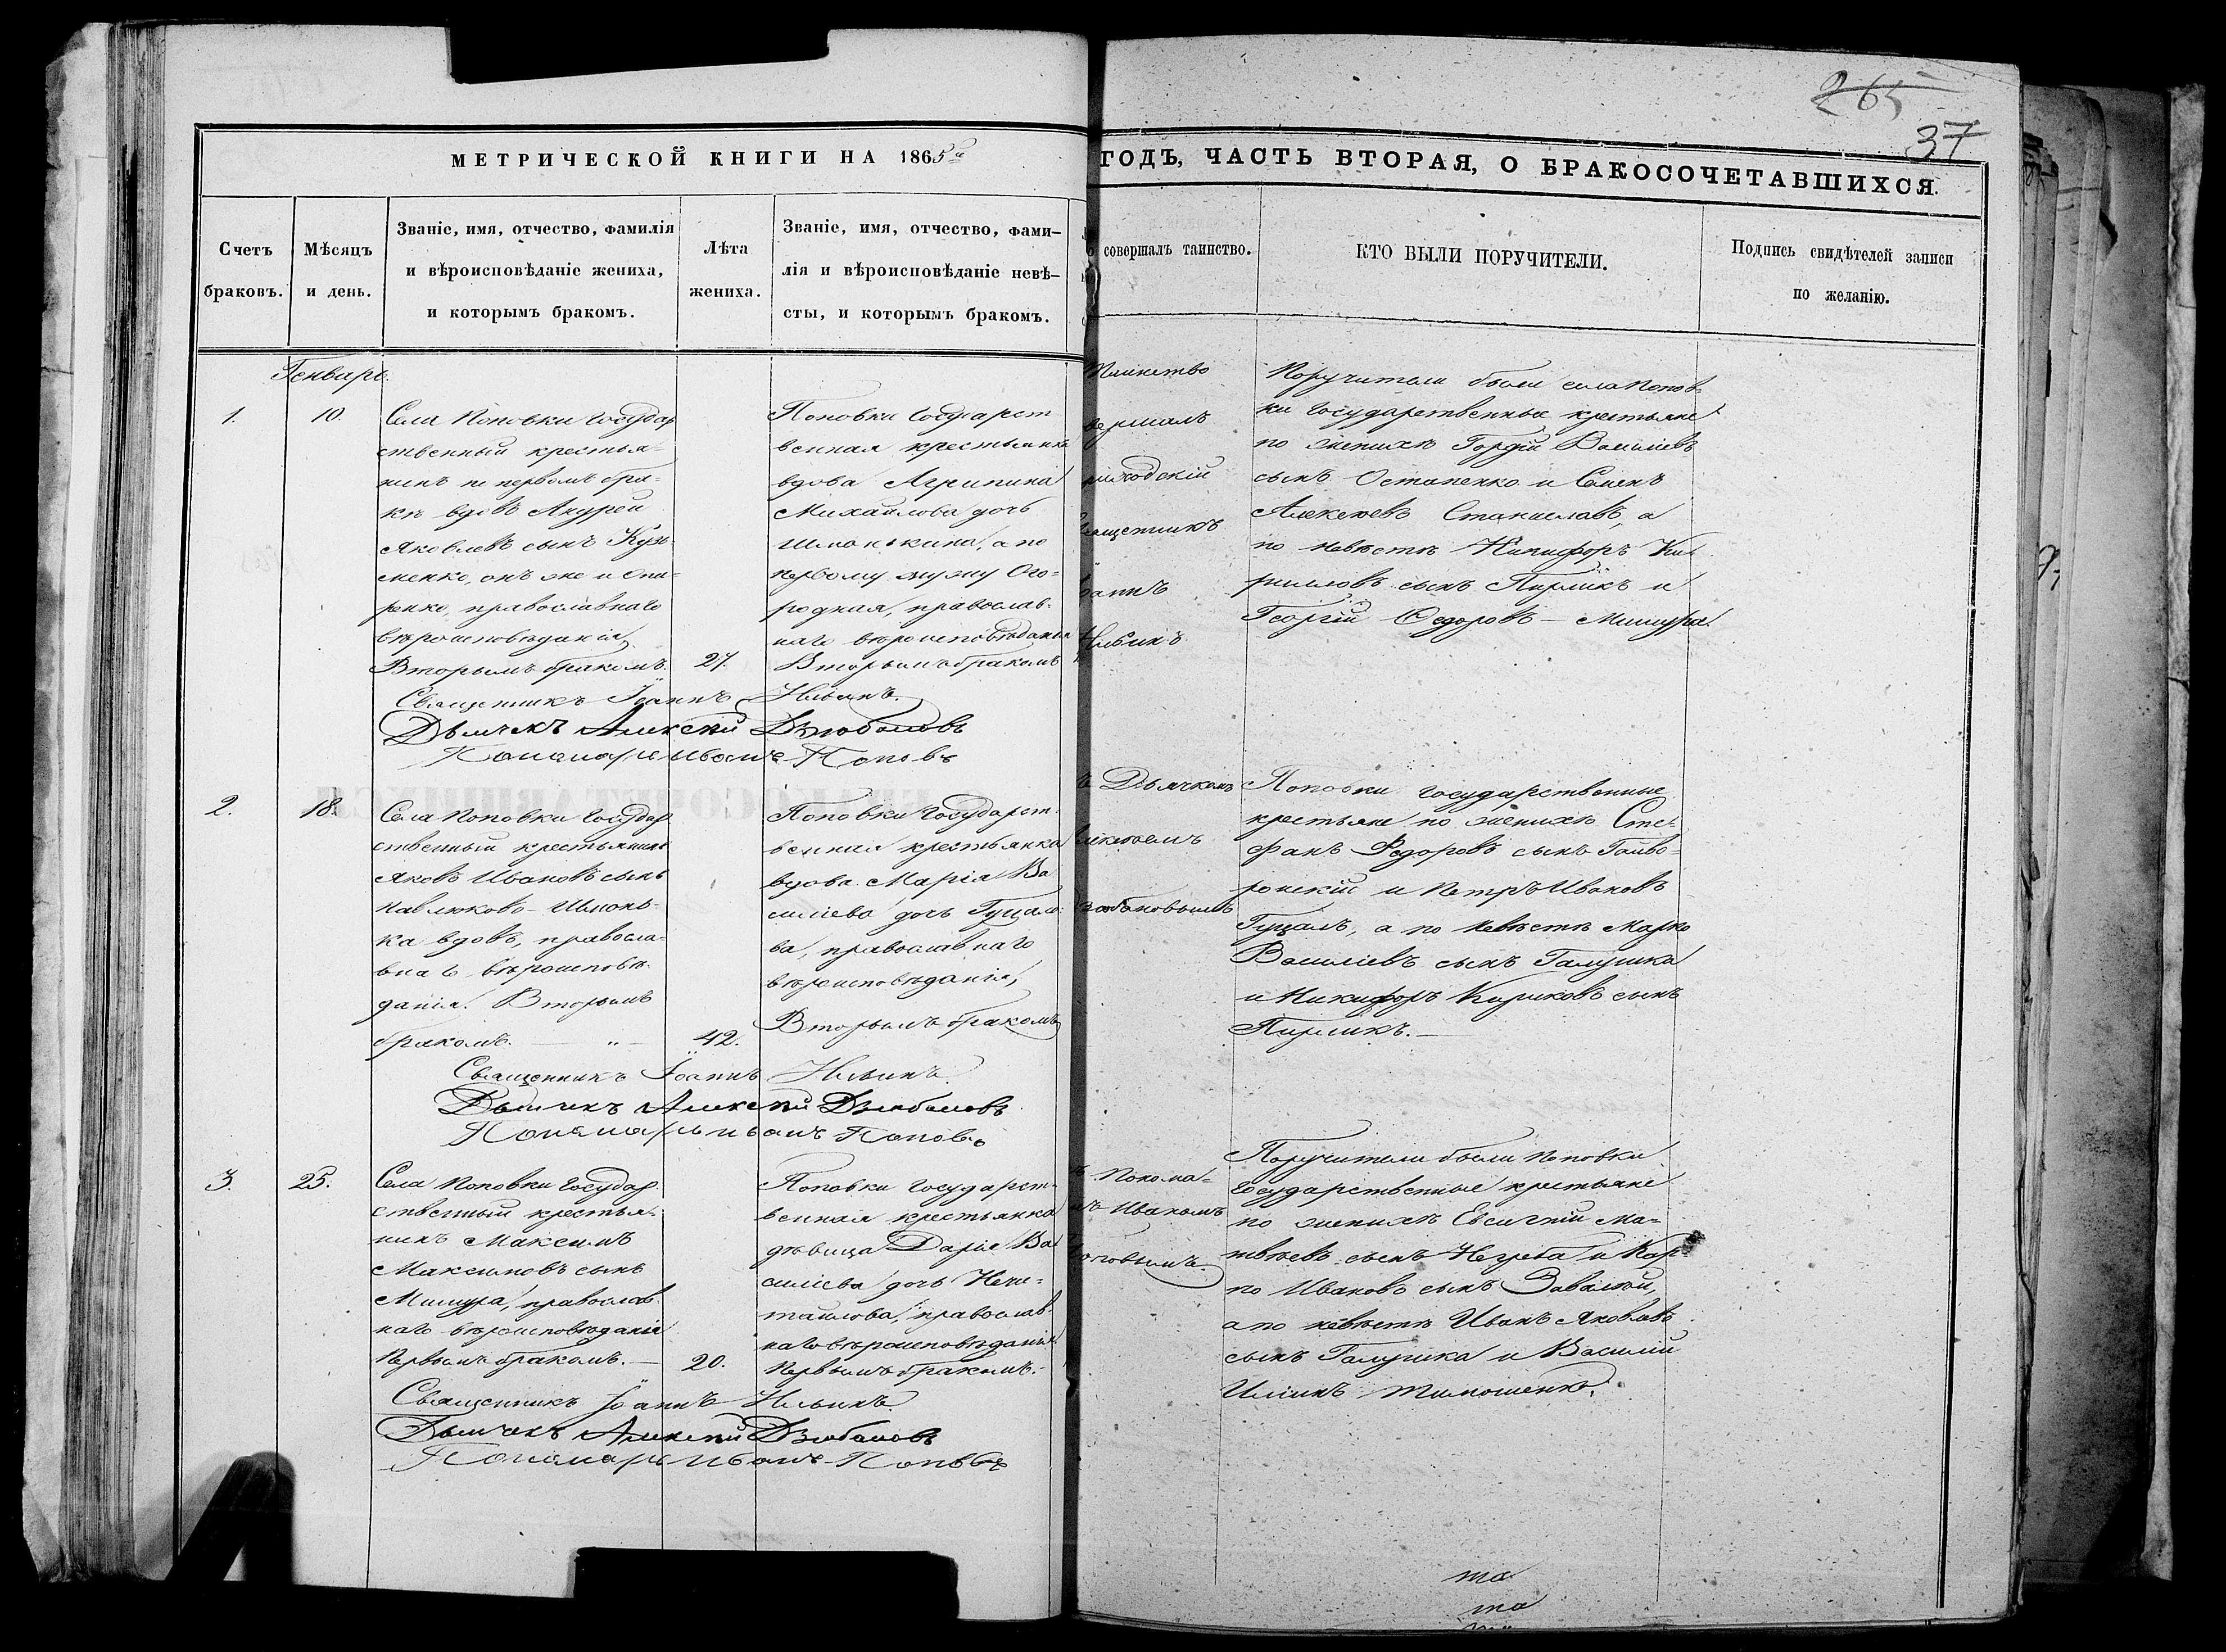 265
37
МЕТРИЧЕСКОЙ КНИГИ НА 1865й
ГОДЪ, ЧАСТЬ ВТОРАЯ, О БРАКОСОЧЕТАВШИХСЯ.
Счетъ
браковъ.
Мѣсяцъ
и день.
Званіе, имя, отчество, фамилія
и вѣроисповѣданіе жениха,
и которымъ бракомъ.
Лѣта
жениха.
Званіе, имя, отчество, фами-
лія и вѣроисповѣданіе невѣ-
сты, и которымъ бракомъ.
совершалъ таинство.
КТО БЫЛИ ПОРУЧИТЕЛИ.
Подпись свидѣтелей записи
по желанію.
Генварь.
1.
10.
Села Поповки государ
ственный крестья-
нинъ по первомъ бра-
кѣ вдовъ Андрей
Яковлевъ сынъ Кузь
менко, онъ же и Опа-
ренко, православнаго
вѣроисповѣданія,
Вторымъ бракомъ.
27.
Поповки государст
венная крестьянка
вдова Агрипина
Михайлова дочь
а по
первому мужу Ого-
родная, православ-
наго вѣроисповѣданія
Вторымъ бракомъ
Таинство
вершалъ
риходскій
ященникъ
оаннъ
Ильинъ
Поручители были села Попов-
ки государственные крестьяне
по женихѣ Гордій Василіевъ
сынъ Остапенко и Семенъ
Алексѣевъ Станиславъ, а
по невѣстѣ Никифоръ Ки-
рилловъ сынъ Пирликъ и
Георгій Ѳедоровъ - Мишура.
Священникъ Іоаннъ Ильинъ.
Дьячекъ Алексѣй Дзюбановъ
Пономарь Иванъ Поповъ
2.
18.
Села Поповки государ
ственный крестьянинъ
Яковъ Ивановъ сынъ
Павлюково - Шпонь-
ка вдовъ, правосла-
внаго вѣроисповѣ-
данія. Вторымъ
бракомъ. — „ —
42.
Поповки государст-
венная крестьянка
вдова Марія Ва
силіева дочь Гуцало-
ва, православнаго
вѣроисповѣданія,
Вторымъ бракомъ
ъ Дьячкомъ
лексѣемъ
зюбановымъ
Поповки государственные
крестьяне по женихѣ Сте-
фанъ Ѳедоровъ сынъ Гайво-
ронскій и Петръ Ивановъ
Гуцалъ, а по невѣстѣ Марко
Василіевъ сынъ Галушка
и Никифоръ Кириловъ сынъ
Пирликъ. —
Священникъ Іоаннъ Ильинъ.
Дьячекъ Алексѣй Дзюбановъ
Пономарь Иванъ Поповъ
3.
25.
Села Поповки государ-
ственный крестья-
нинъ Максимъ
Максимовъ сынъ
Мишура, православ-
наго вѣроисповѣданія
Первымъ бракомъ. —
20.
Поповки государст-
венная крестьянка
дѣвица Дарія Ва
силіева дочь Нечи-
тайлова, православ-
наго вѣроисповѣданія.
Первымъ бракомъ.
ъ Понома-
мъ Иваномъ
оповымъ.
Поручители были Поповки
государственные крестьяне
по женихѣ Евсигній Ма-
твѣевъ сынъ Негреба и Кар-
по Ивановъ сынъ Завалій,
а по невѣстѣ Иванъ Яковлевъ
сынъ Галушка и Василій
Илiинъ Тимошенко.
Священникъ Іоаннъ Ильинъ.
Дьячекъ Алексѣй Дзюбановъ
Пономарь Иванъ Поповъ
та
та